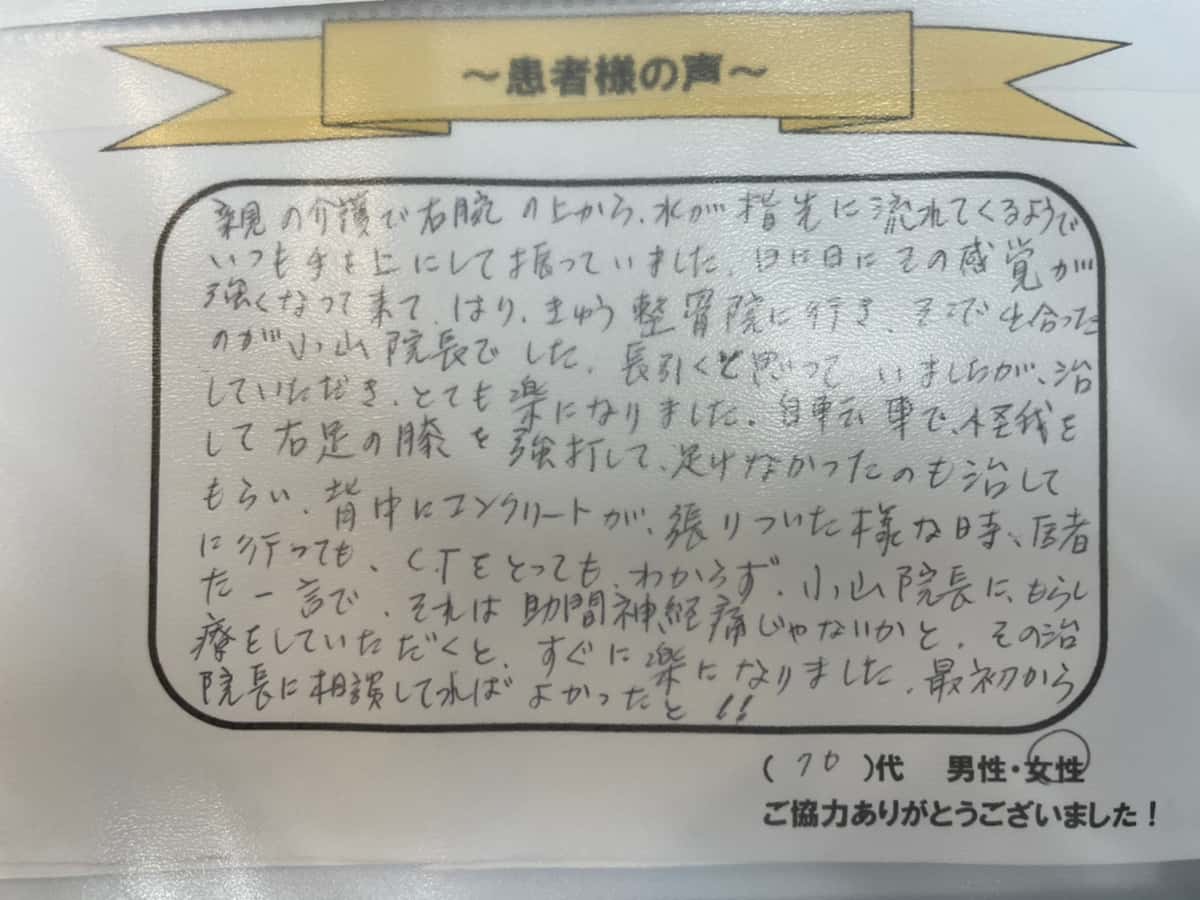 ～患者様の声～
親の介護で右腕の上から、水が指先に流れてくるようで
いつも手を上にして振っていました。日に日にその感覚が
強くなって来て、はり、きゅう整骨院に行き、そこで出合った
のが小山院長でした。長引くと思っていましたが、治
していただき、とても楽になりました。自転車で、怪我を
して右足の膝を強打して、足けなかったのも治して
もらい、背中にコンクリートが、張りついた様な時、医者
に行っても、CTをとっても、わからず、小山院長に、もらし
た一言で、それは助間神経痛じゃないかと、その治
療をしていただくと、すぐに楽になりました。最初から
院長に相談してればよかったと!!
(70)代 男性・女性
ご協力ありがとうございました！